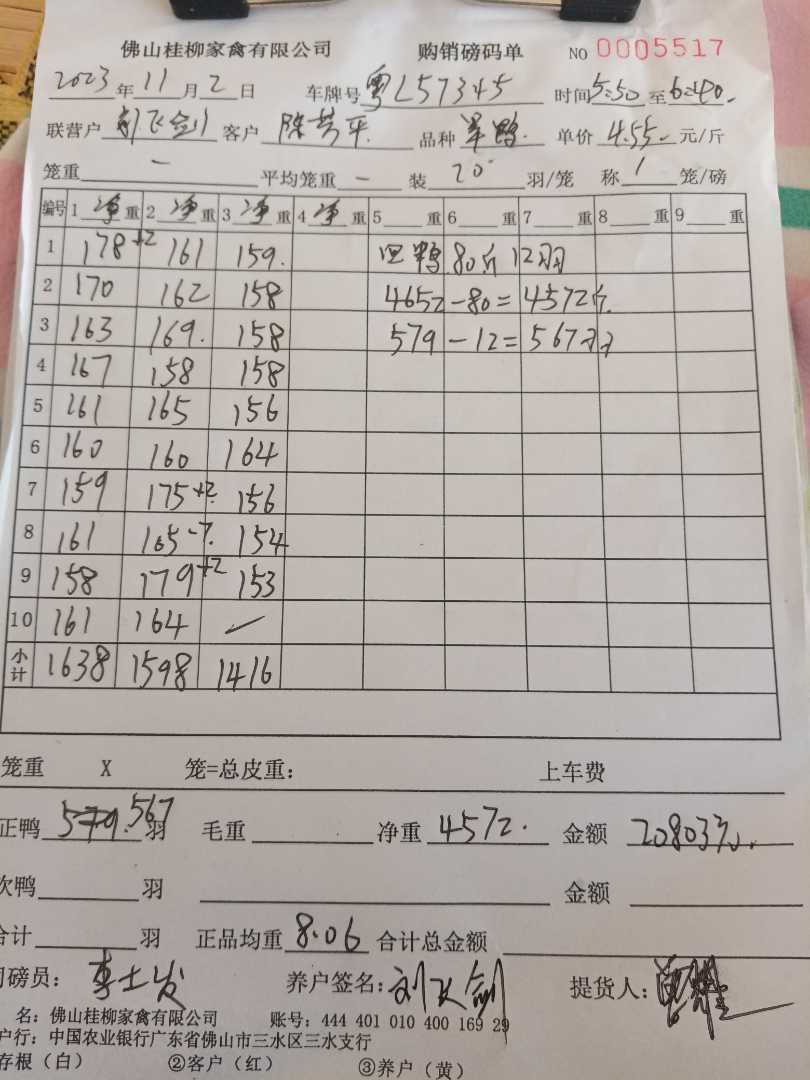 佛山桂柳家禽有限公司 购销磅码单 NO 0005517
2023年11月2日 车牌号粤L57345 时间5:50至6:40
联营户刘飞剑 客户陈 平 品种单鸭 单价4.55元/斤
笼重 一 平均笼重 一 装20羽/笼 称1笼/磅
编号 1净重 2净重 3净重 4净重 5 重 6 重 7 重 8 重 9 重
1 178+2 161 159 鸭80斤12羽
2 170 162 158 4652-80=4572斤
3 163 169 158 579-12=567羽
4 167 158 158
5 161 165 156
6 160 160 164
7 159 175+2 156
8 161 165-7 154
9 158 179+2 153
10 161 164
小计 1638 1598 1416
笼重 X 笼=总皮重: 上车费
正鸭579.567羽 毛重 净重4572. 金额20803元
次鸭 羽 金额
合计 羽 正品均重8.06 合计总金额
司磅员:李士发 养户签名:刘飞剑 提货人:
名:佛山桂柳家禽有限公司 账号:444 401 010 400 169 29
户行:中国农业银行广东省佛山市三水区三水支行
存根(白) ②客户(红) ③养户(黄)